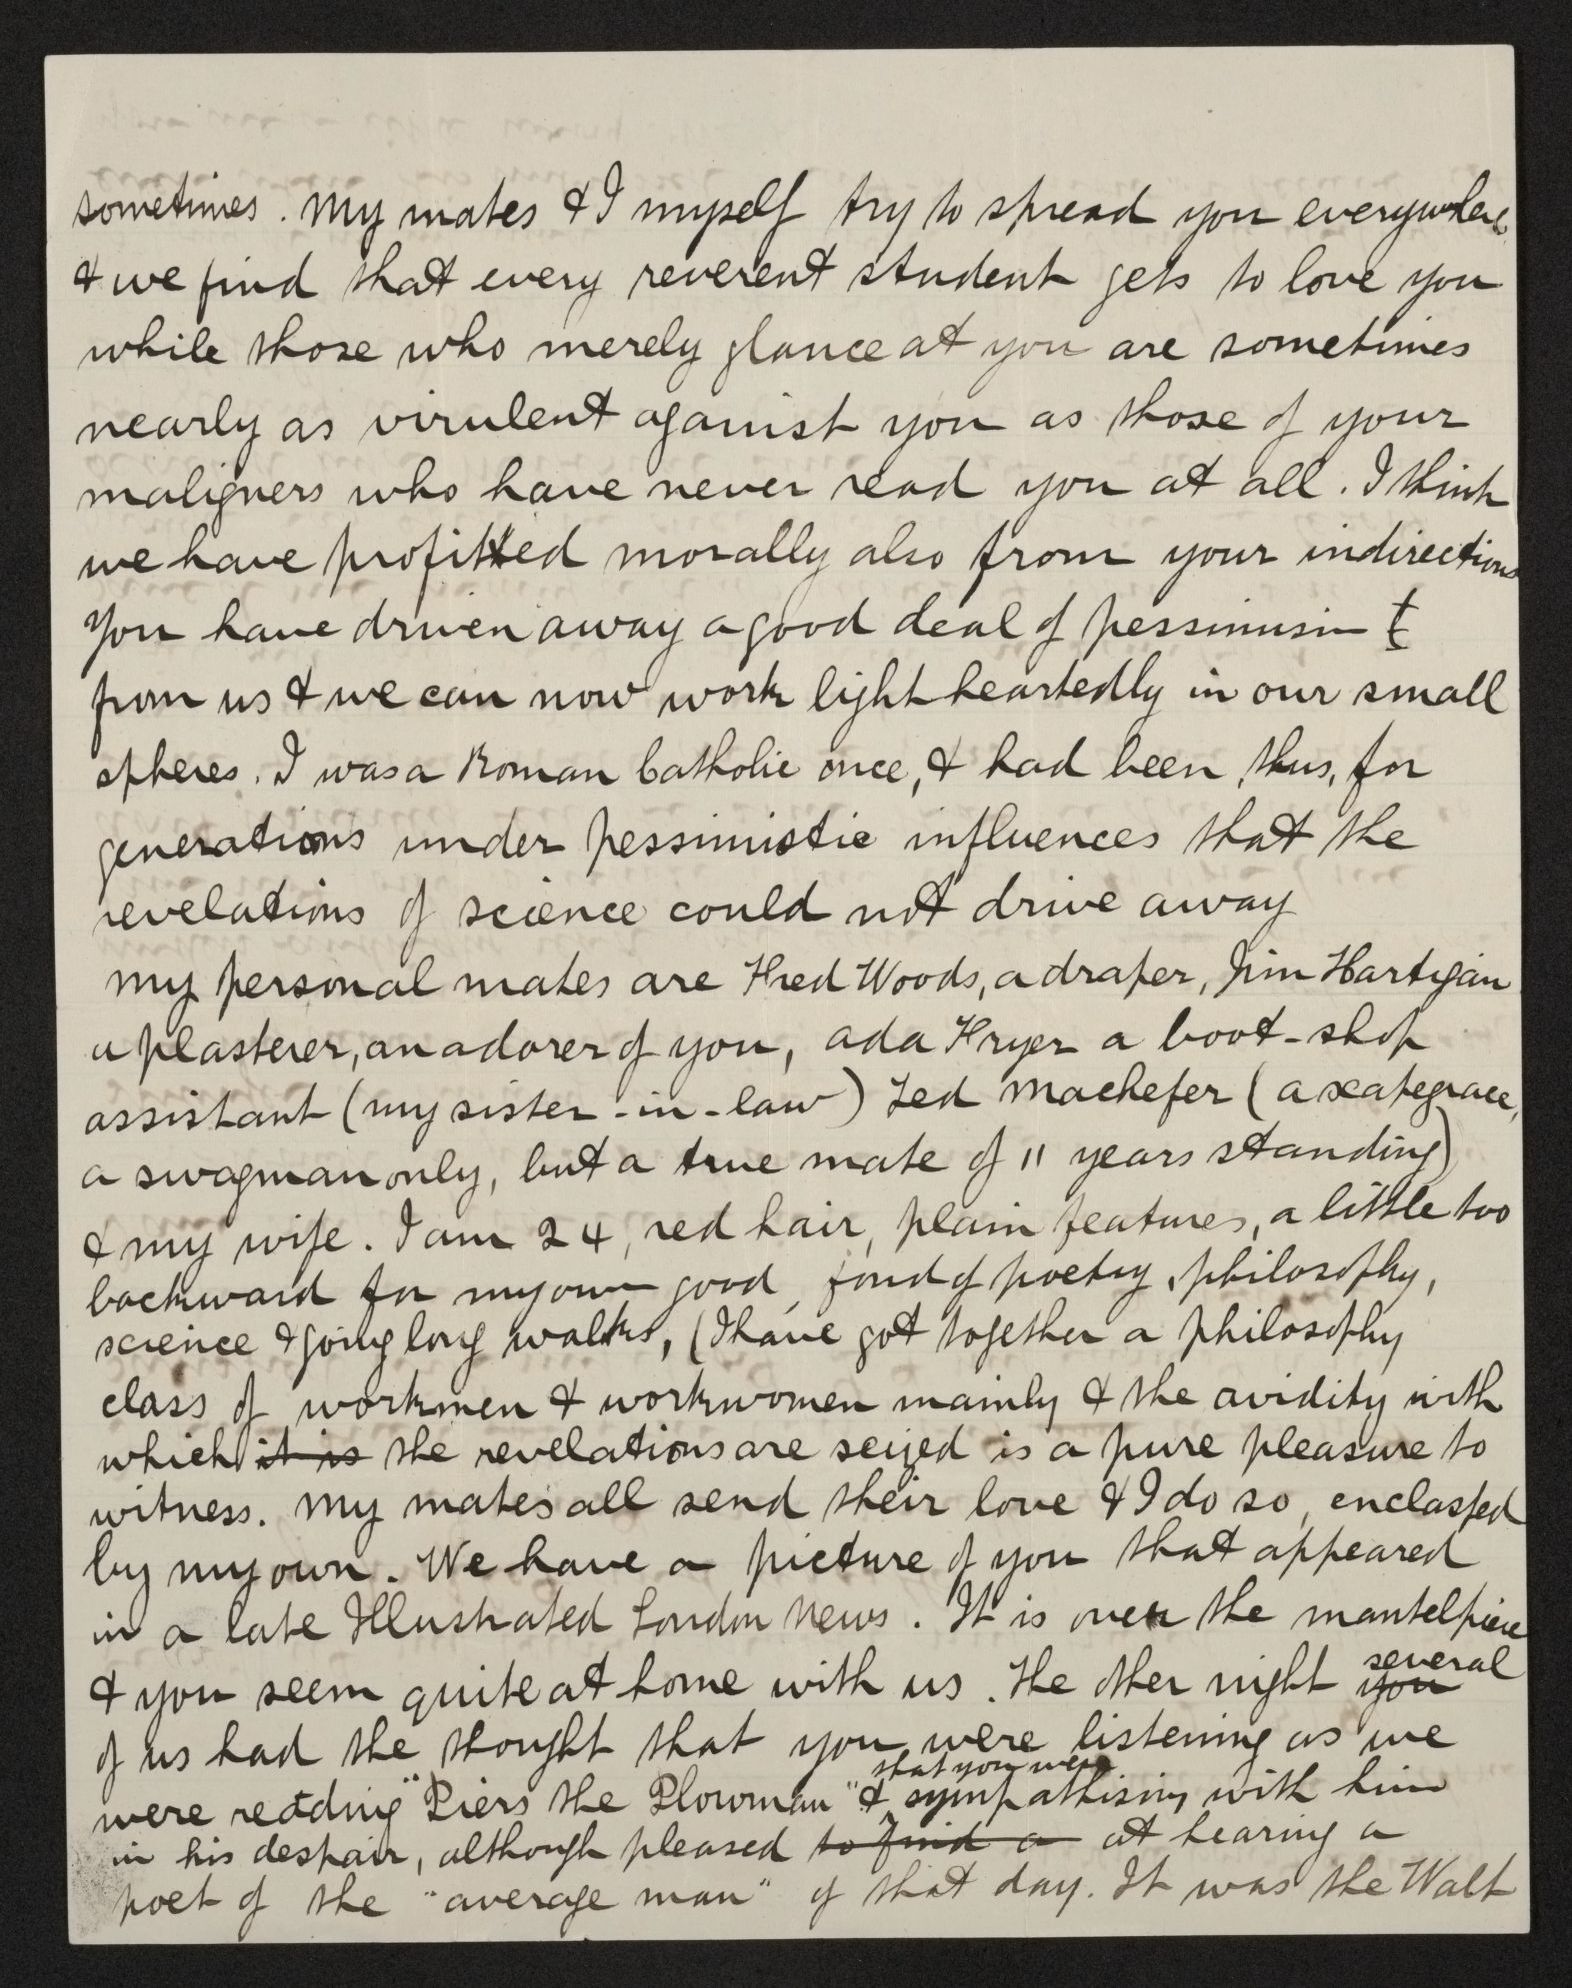 sometimes. My mates & I myself try to spread you everywhere
& we find that every reverent student gets to love you
while those who merely glance at you are sometimes
nearly as virulent against you as those of your
maligners who have never read you at all. I think
we have profitted morally also from your indirections
You have driven away a good deal of pessimism
from us & we can now work light heartedly in our small
spheres. I was a Roman Catholic once, & had been, thus, for
generations under pessimistic influences that the
revelations of science could not drive away
My personal mates are Fred Woods, a draper, Jim Hartigan
a plasterer, an adorer of you, Ada Fryer a boot-shop
assistant (my sister-in-law) Ted Machefer (a scapegrace,
a swagman only, but a true mate of 11 years standing)
& my wife. I am 24, red hair, plain features, a little too
backward for my own good, fond of poetry, philosophy,
science & going long walks, (I have got together a philosophy
class of workmen & workwomen mainly & the avidity with
which it is the revelations are seized is a pure pleasure to
witness. My mates all send their love & I do so, enclasped
by my own. We have a picture of you that appeared
in a late Illustrated London News. It is over the mantelpiece
& you seem quite at home with us. The other night you several
of us had the thought that you were listening as we
were reading "Piers the Plowman" & that you were sympathising with him
in his despair, although pleased to find a at hearing a
poet of the "average man" of that day. It was the Walt